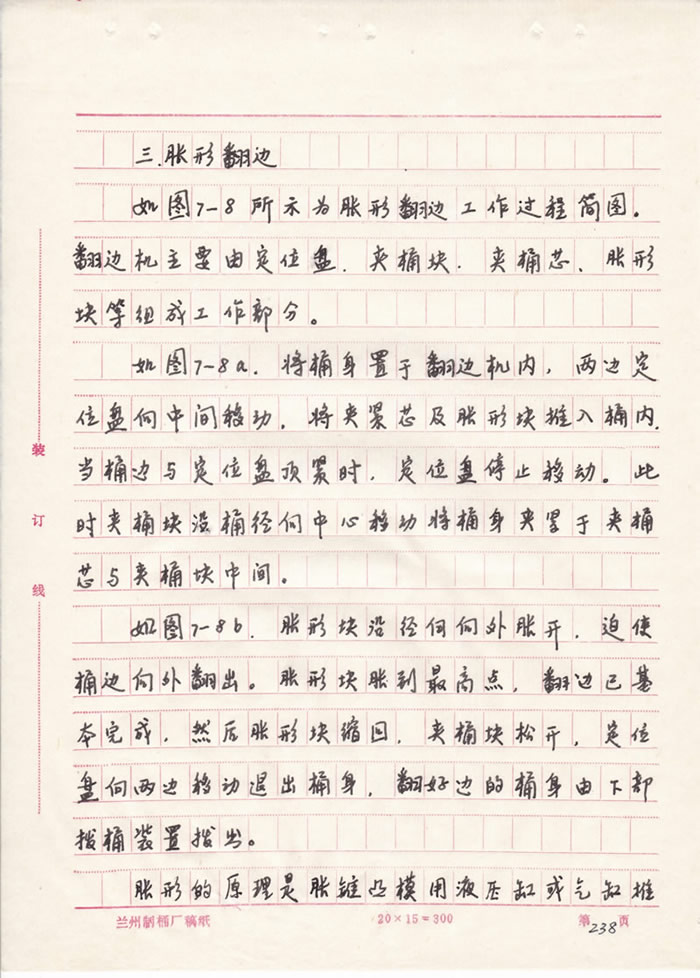 三.胀形翻边
如图7-8所示为胀形翻边工作过程简图。
翻边机主要由定位盘.夹桶块.夹桶芯、胀形
块等组成工作部分。
如图7-8a.将桶身置于翻边机内,两边定
位盘向中间移动,将夹紧芯及胀形块推入桶内.
当桶边与定位盘顶紧时,定位盘停止移动。此
时夹桶块沿桶径向中心移动将桶身夹紧于夹桶
芯与夹桶块中间。
如图7-8b.胀形块沿径向向外胀开,迫使
桶边向外翻出。胀形块胀到最高点,翻边已基
本完成,然后胀形块缩回.夹桶块松开,定位
盘向两边移动退出桶身,翻好边的桶身由下部
拨桶装置拨出。
胀形的原理是胀锥凸模用液压缸或气缸推
装
订
线
兰州制桶厂稿纸
20×15=300
第238页